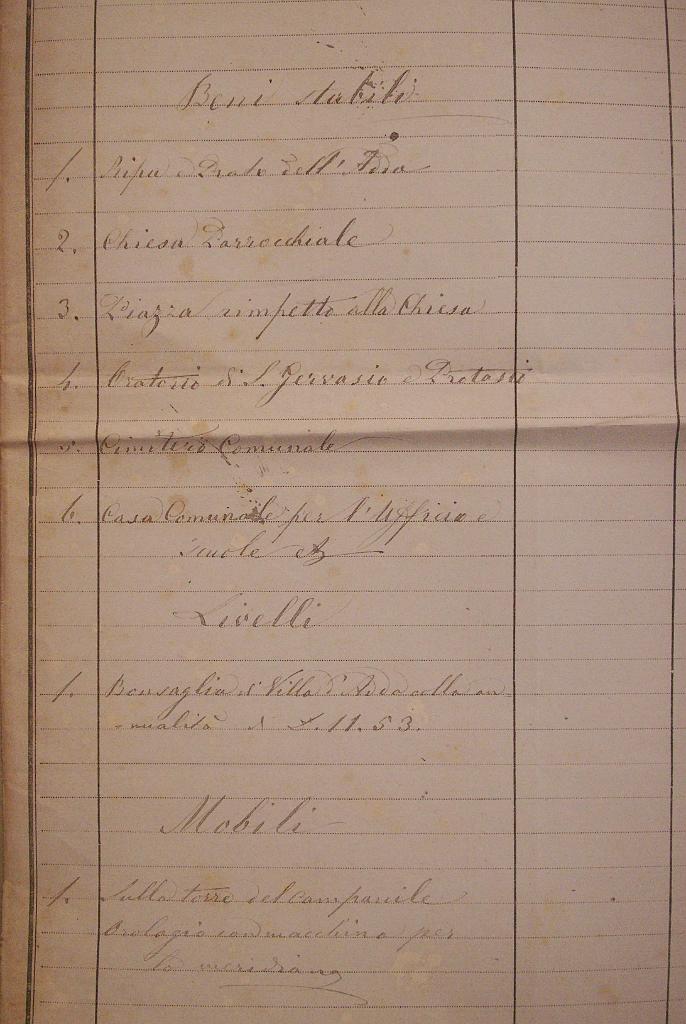 Beni stabili
1. Ripa e Prato dell'Adda
2. Chiesa Parrocchiale
3. Piazza rimpetto alla Chiesa
4. Oratorio di S. Gervasio e Protasio
5. Cimitero Comunale
6. Casa Comunale per l'Ufficio e
Scuole
Livelli
1. Bonsaglia Villa d'Adda colla an-
-nualità di L. 11.53.
Mobili
1. Sulla torre del campanile
Orologio con macchina per
la meridiana